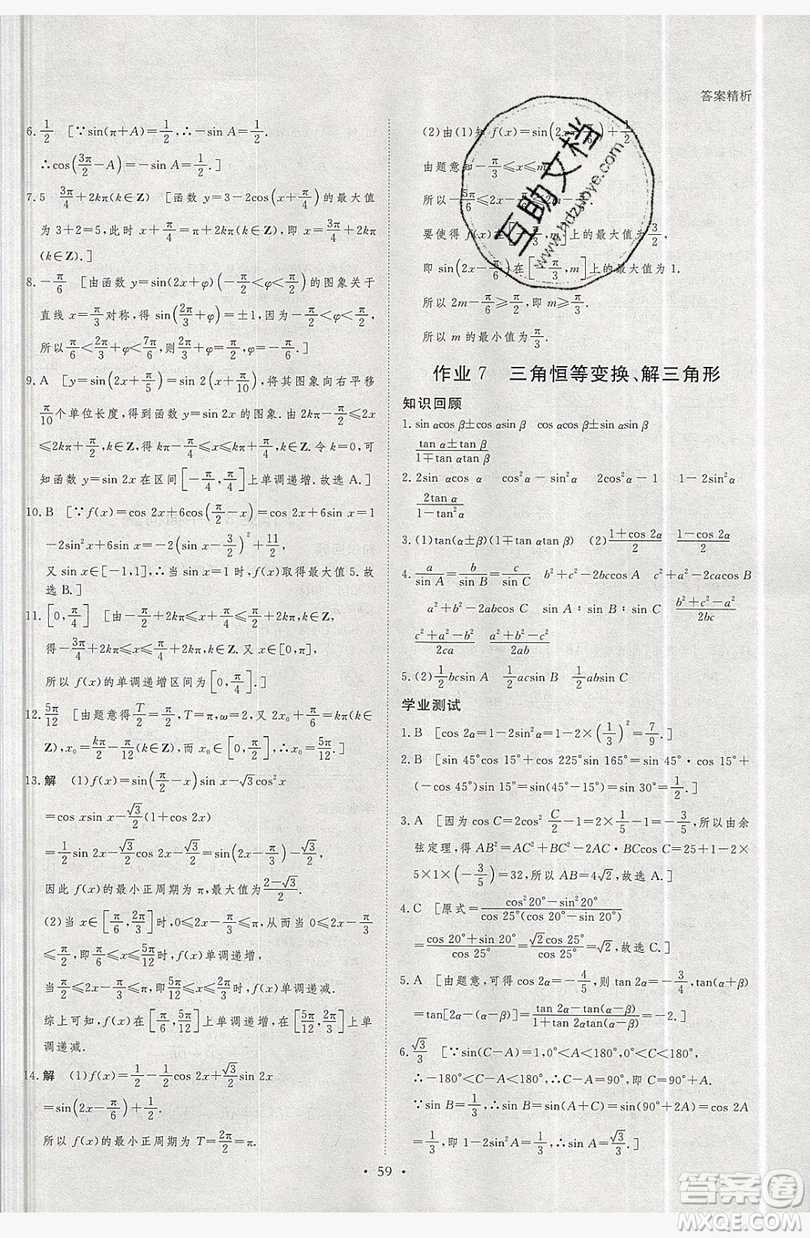 答案精析
6.1/2 [∵sin(π+A)=-sin A=-1/2.
∴cos(3π/2-A)=-sin A=-1/2.]
7.5 3π/4+2kπ(k∈Z) [函数 y=3-2cos(x+π/4)的最大值
为 3+2=5,此时 x+π/4=π+2kπ(k∈Z),即 x=3π/4+
2kπ(k∈Z).]
8.-π/6 [由函数 y=sin(2x+φ)(-π/2<φ<π/2)的图象关于
直线 x=π/3 对称,得 sin(2π/3+φ)=±1,因为-π/2<φ<π/2,
所以π/6<2π/3+φ<7π/6,则2π/3+φ=π/2,φ=-π/6.]
9.A [将函数 y=sin(2x+π/5)的图象向右平移
π/10个单位长度,得函数 y=sin 2x 的图象.由 2kπ-π/2
≤2x≤2kπ+π/2,k∈Z,得 kπ-π/4≤x≤kπ+π/4,k∈Z,可
知函数 y=sin 2x 在区间[-π/4,π/4]上单调递增.故选 A.]
10.B [∵f(x)=cos 2x+6cos(π/2-x)=cos 2x+6sin x=
1-2sin²x+6sin x=-2(sin x-3/2)²+11/2,
又 sin x∈[-1,1],∴当 sin x=1 时,f(x)取得最大值 5.故
选 B.]
12.5π/12 [由题意得T/2=π/2,T=π,ω=2,又 2x₀+π/6=kπ(k∈
Z),x₀=kπ/2-π/12(k∈Z),而 x₀∈[0,π/2],所以 x₀=5π/12.]
13.解 (1)f(x)=sin(π/2-x)sin x-√3cos²x
=cos xsin x-√3/2(1+cos 2x)
=1/2sin 2x-√3/2cos 2x-√3/2=sin(2x-π/3)-√3/2,
因此 f(x)的最小正周期为 π,最大值为(2-√3)/2.
(2)当 x∈[π/6,2π/3]时,0≤2x-π/3≤π,从而当 0≤2x-π/3
≤π/2,即π/6≤x≤5π/12时,f(x)单调递增,
当π/2≤2x-π/3≤π,即5π/12≤x≤2π/3时,f(x)单调递减.
综上可知,f(x)在[π/6,5π/12]上单调递增,在[5π/12,2π/3]上单
调递减.
14.解 (1)f(x)=1/2-1/2cos 2x+√3/2sin 2x
=sin(2x-π/6)+1/2,
所以 f(x)的最小正周期为 T=2π/2=π.
(2)由(1)知 f(x)=sin(2x-π/6)+1/2.
由题意知-π/3≤x≤m,
要使得 f(x)在[-π/3,m]上的最大值为3/2,
即 sin(2x-π/6)在[-π/3,m]上的最大值为 1.
所以 2m-π/6≥π/2,即 m≥π/3.
所以 m 的最小值为π/3.
作业 7 三角恒等变换、解三角形
知识回顾
1.sin αcos β±cos αsin β cos αcos β∓sin αsin β
(tan α±tan β)/(1∓tan αtan β)
2.2sin αcos α cos²α-sin²α 2cos²α-1 1-2sin²α
2tan α/(1-tan²α)
3.(1)tan(α±β)(1∓tan αtan β) (2)(1+cos 2α)/2 (1-cos 2α)/2
4.a/sin A=b/sin B=c/sin C b²+c²-2bccos A a²+c²-2accos B
a²+b²-2abcos C sin A∶sin B∶sin C (b²+c²-a²)/2bc
(c²+a²-b²)/2ca (a²+b²-c²)/2ab
5.(2)1/2bcsin A 1/2acsin B 1/2absin C
学业测试
1.B [cos 2α=1-2sin²α=1-2×(1/3)²=7/9.]
2.B [sin 45°cos 15°+cos 225°sin 165°=sin 45°·cos 15°
+(-cos 45°)sin 15°=sin(45°-15°)=sin 30°=1/2.]
3.A [因为 cos C=2cos²C/2-1=2×1/5-1=-3/5,所以由余
弦定理,得 AB²=AC²+BC²-2AC·BCcos C=25+1-2×
5×1×(-3/5)=32,所以 AB=4√2.故选 A.]
4.C [原式=(cos²20°-sin²20°)/(cos 25°(cos 20°-sin 20°))
=(cos 20°+sin 20°)/cos 25°=√2cos 25°/cos 25°=√2,故选 C.]
5.A [由题意,可得 cos α=-4/5,则 tan α=-3/4,tan(α-β)
=tan[2α-(α-β)]=(tan 2α-tan(α-β))/(1+tan 2αtan(α-β))
6.√3/3 [∵sin(C-A)=1,0°<A<180°,0°<C<180°,
∴-180°<C-A<180°,∴C-A=90°,∴C=90°+A.
∵sin B=1/3,∴sin B=sin(A+C)=sin(90°+2A)=cos 2A
=1/3,即 1-2sin²A=1/3,∴sin A=√3/3.]
• 59 •
互助文档
www.hdzuoye.com
答案圈
MXQE.COM